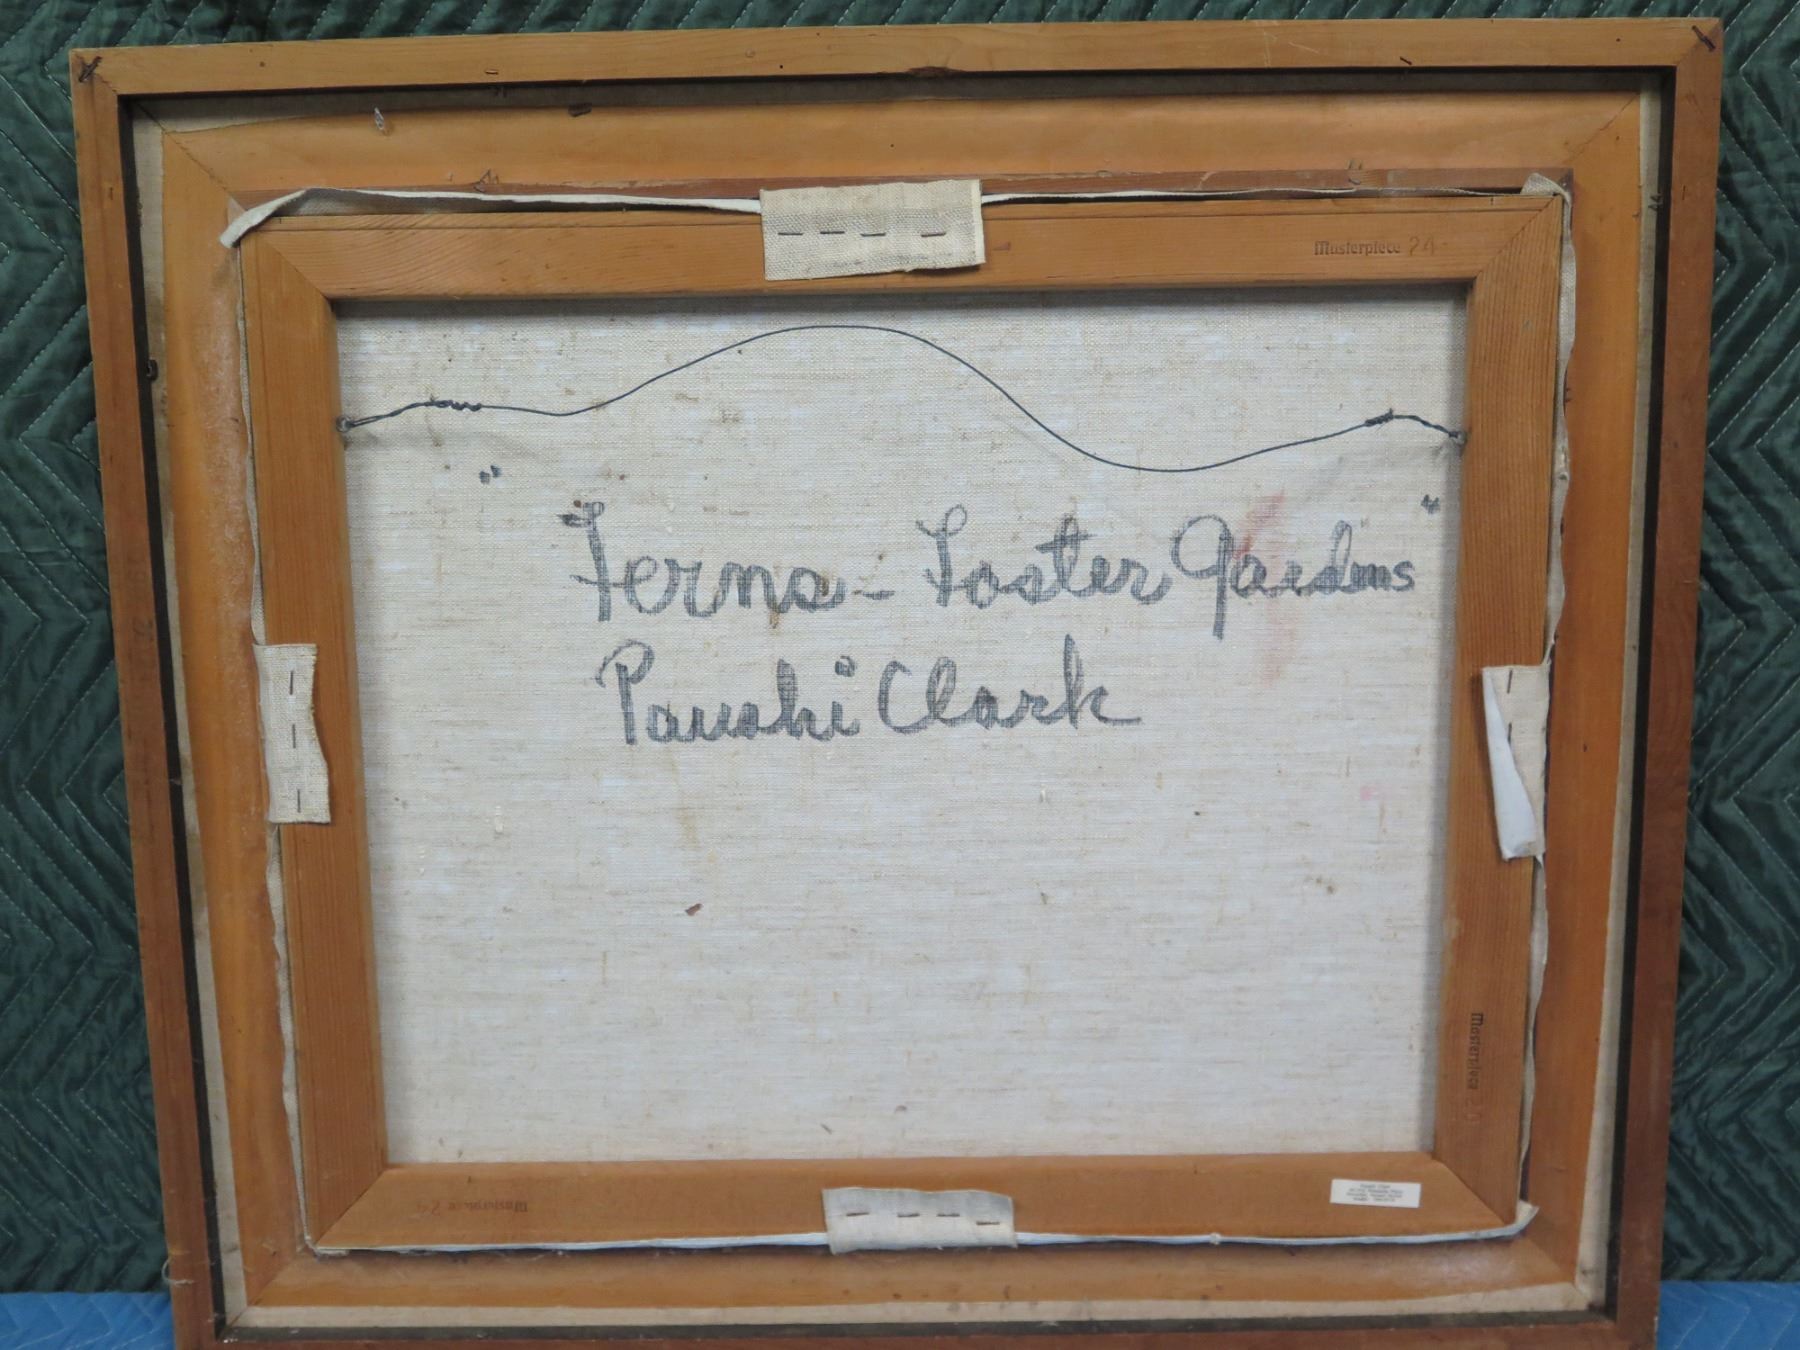 Masterpiece 24
"Ferns - Foster Gardens"
Pauahi Clark
Masterpiece 20
Masterpiece 24